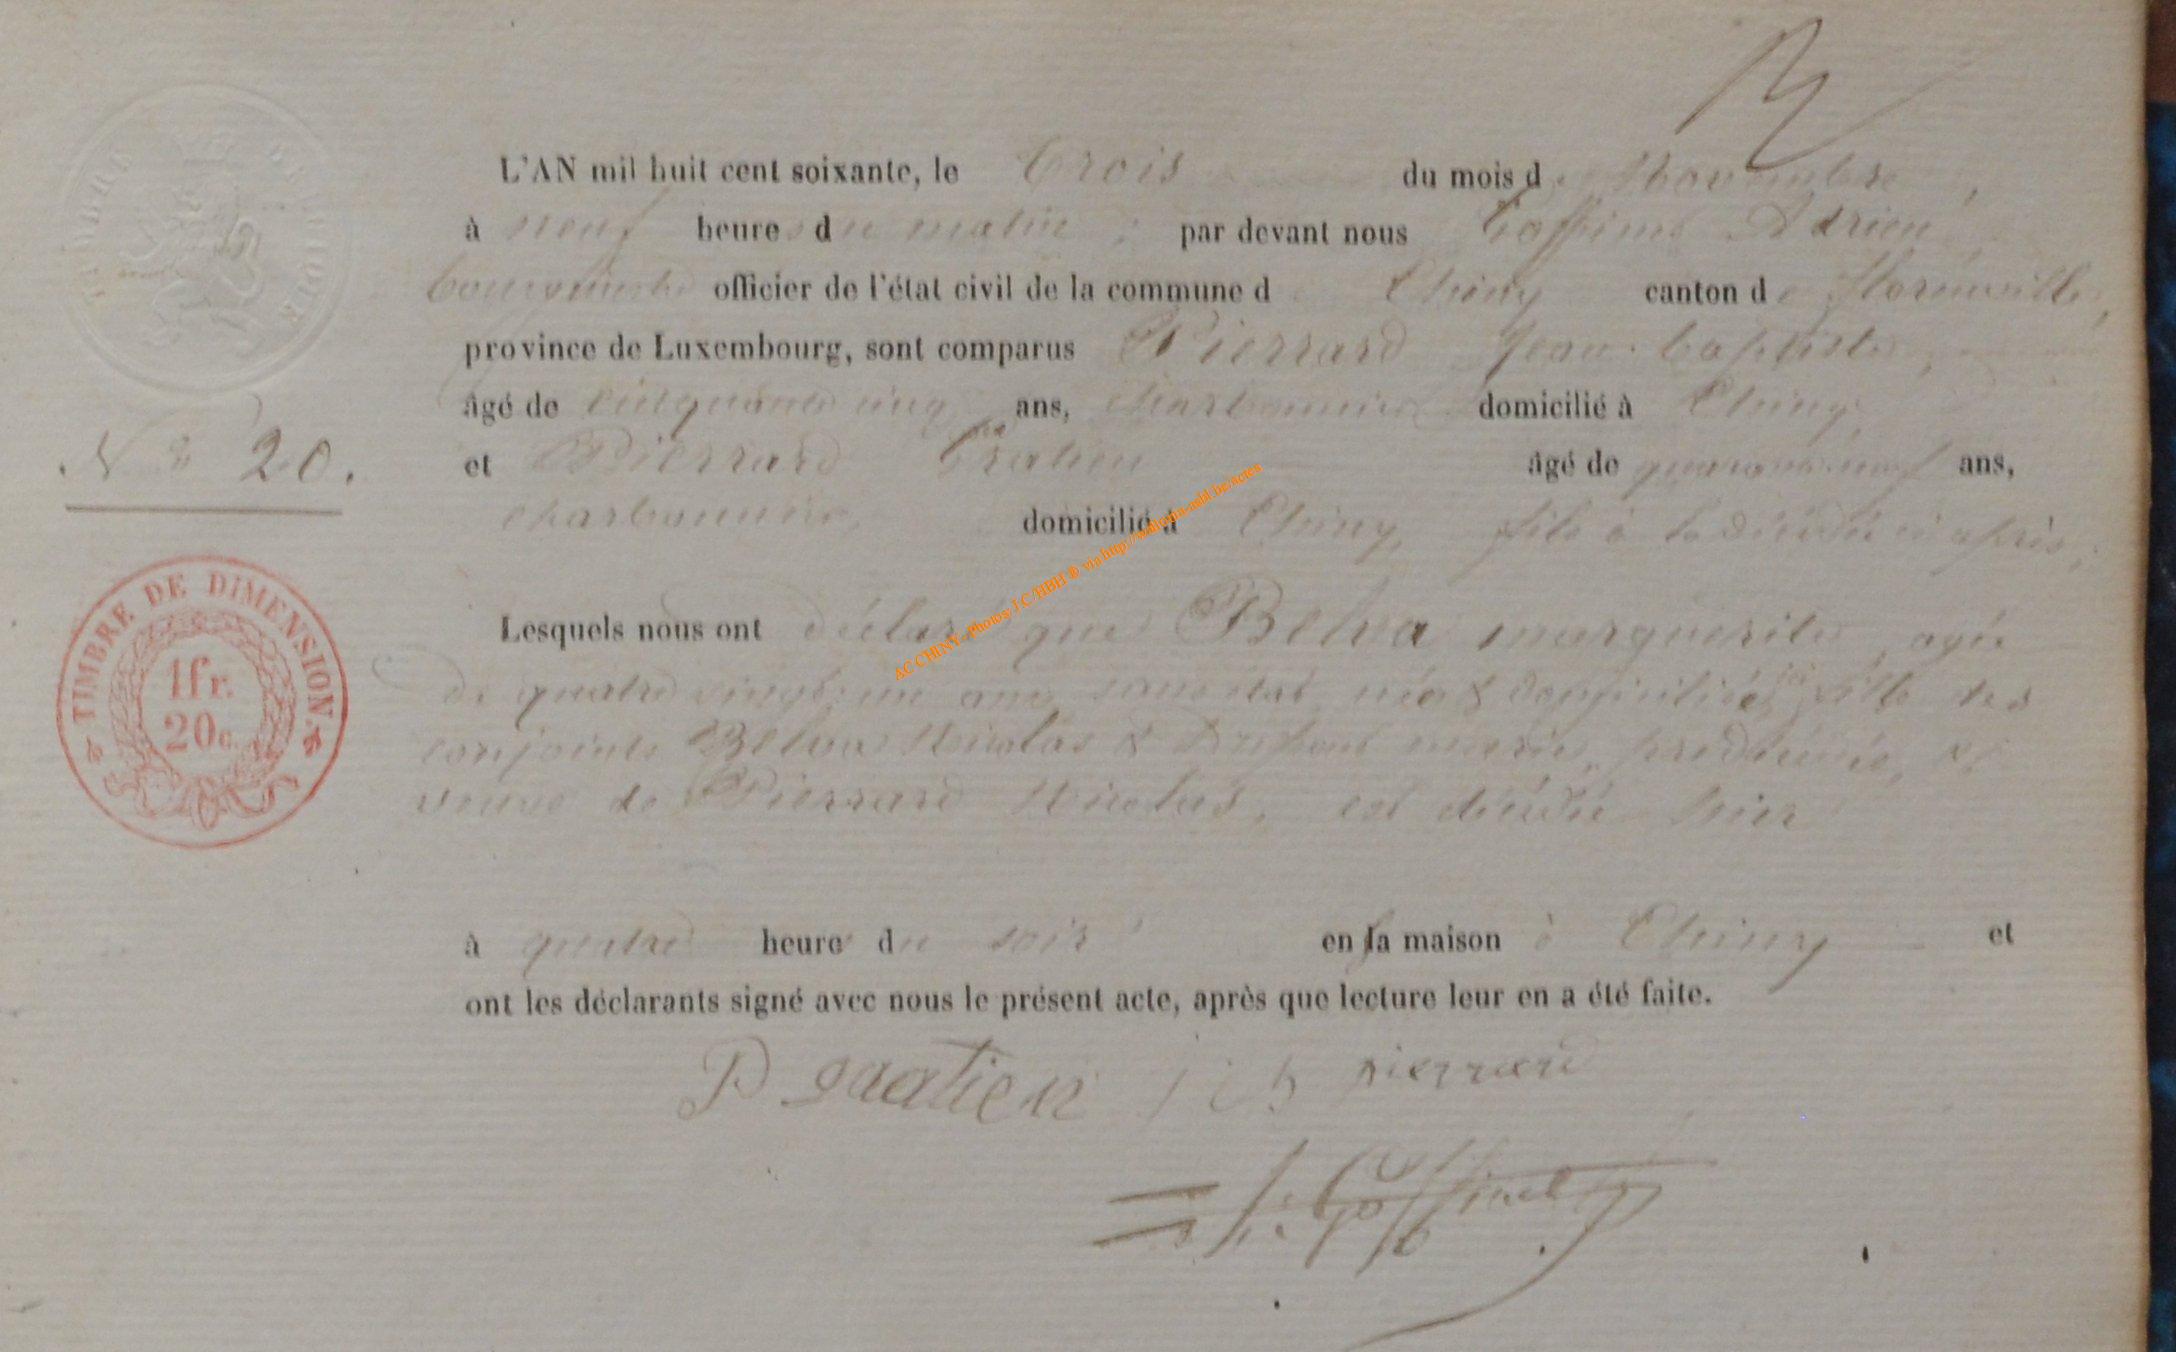 L'AN mil huit cent soixante, le Trois du mois de Novembre,
à neuf heures du matin ; par devant nous Goffinet Adrien
bourgmestre officier de l'état civil de la commune de Chiny canton de Florenville,
province de Luxembourg, sont comparus Pierrard Jean-baptiste,
âgé de cinquante cinq ans, charbonnier domicilié à Chiny
N° 20.
et Pierrard Gratien âgé de quarante neuf ans,
charbonnier, domicilié à Chiny, fils à la décédée ci après,
TIMBRE DE DIMENSION.
1fr.
20c.
Lesquels nous ont déclaré que Belva marguerite, agée
de quatre vingt un ans, sans état, née & domiciliée ici fille des
conjoints Belva Nicolas & marie, prédécédés, &
veuve de Pierrard Nicolas, est décédée hier
à quatre heure du soir en sa maison à Chiny et
ont les déclarants signé avec nous le présent acte, après que lecture leur en a été faite.
P gratien j b pierrard
Goffinet
AC CHINY. Photos J.C/HBH ® via http://wallonia-asbl.be/actes